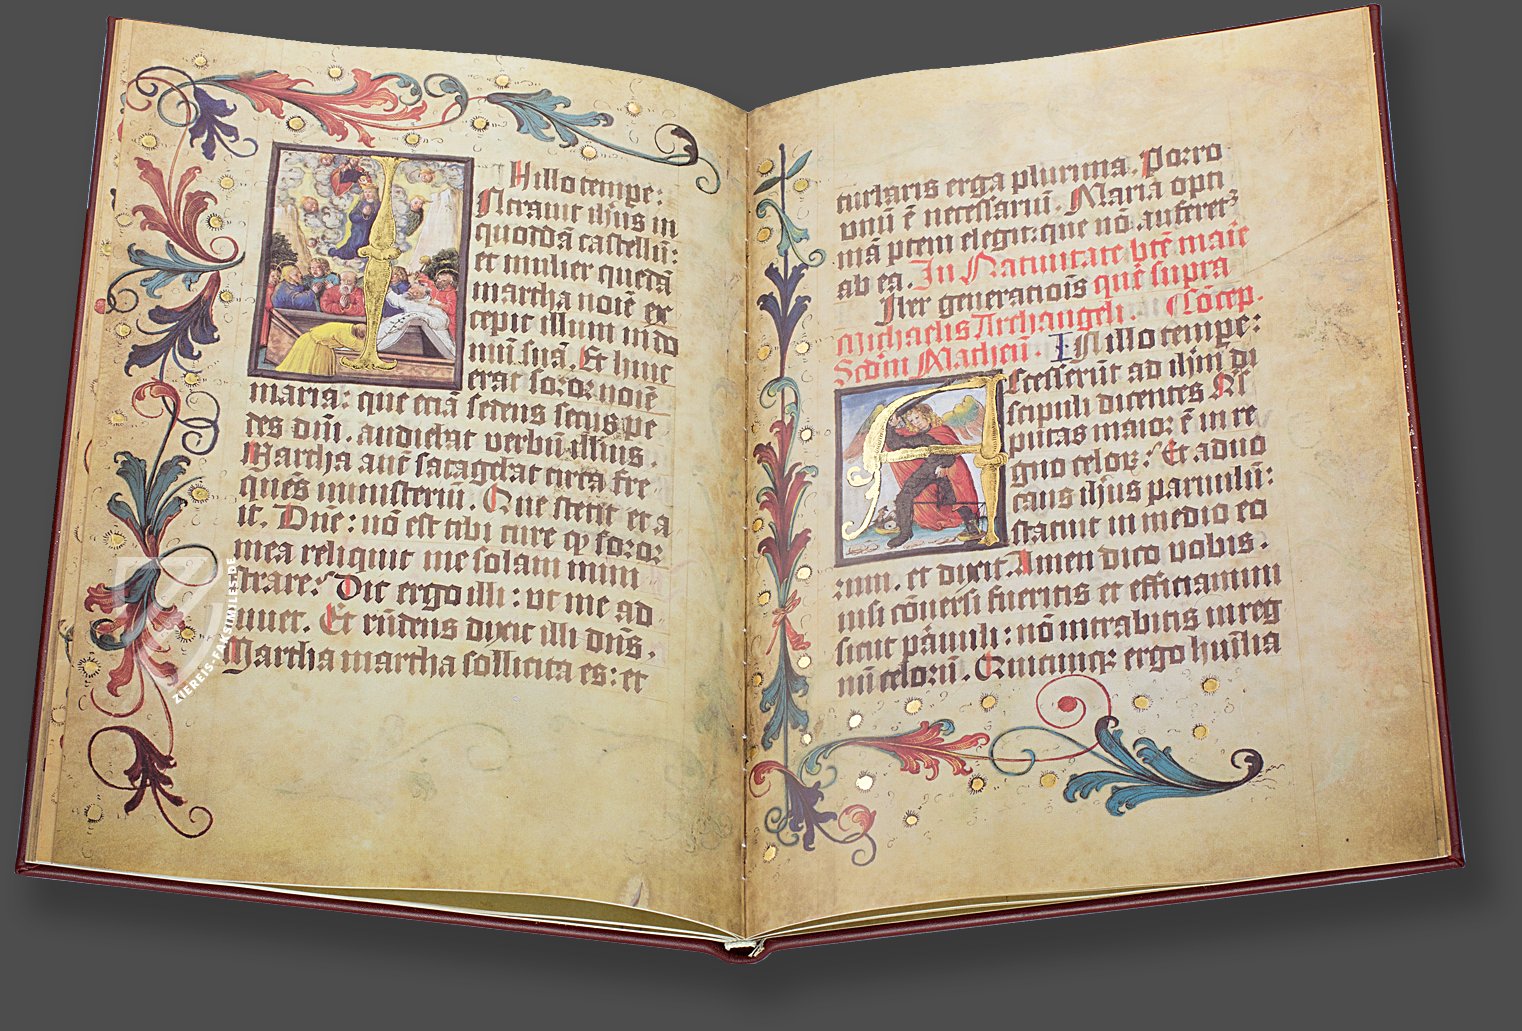 N illo tempe:
Intrauit ih̄us in
quoddā castellū:
et mulier quedā
martha noīe ex
cepit illum in do
mū suā. Et huic
erat soror noīe
maria: que eciā sedens secus pe
des dn̄i. audiebat verbū illius.
Martha aut̄ satagebat circa fre
quēs ministeriū. Que stetit et a
it. Dn̄e: nō est tibi cure ꝙ soror
mea reliquit me solam mini
strare? Dic ergo illi: vt me ad
iuuet. Et rn̄dens dixit illi dn̄s.
Martha martha sollicita es: et
turbaris erga plurima. Porro
vnū ē necessariū. Maria opti
mā ptem elegit: que nō auferet᷑
ab ea. In Natiuitate bt̄e marie
Liber generatiōis quē supra
Michaelis Archangeli. Cōcep.
Scdm̄ Matheū. IN illo tempe:
Accesserūt ad ih̄m di
scipuli dicentes. Q̄s
putas maior ē in re
gno celoꝝ? Et aduo
cans ih̄us paruulū:
statuit in medio eo
rum. et dixit. Amen dico vobis.
nisi cōuersi fueritis et efficiamini
sicut paruuli: nō intrabitis in reg
nū celorū. Quicunqꝫ ergo humilia
ZIEREIS-FAKSIMILES.DE